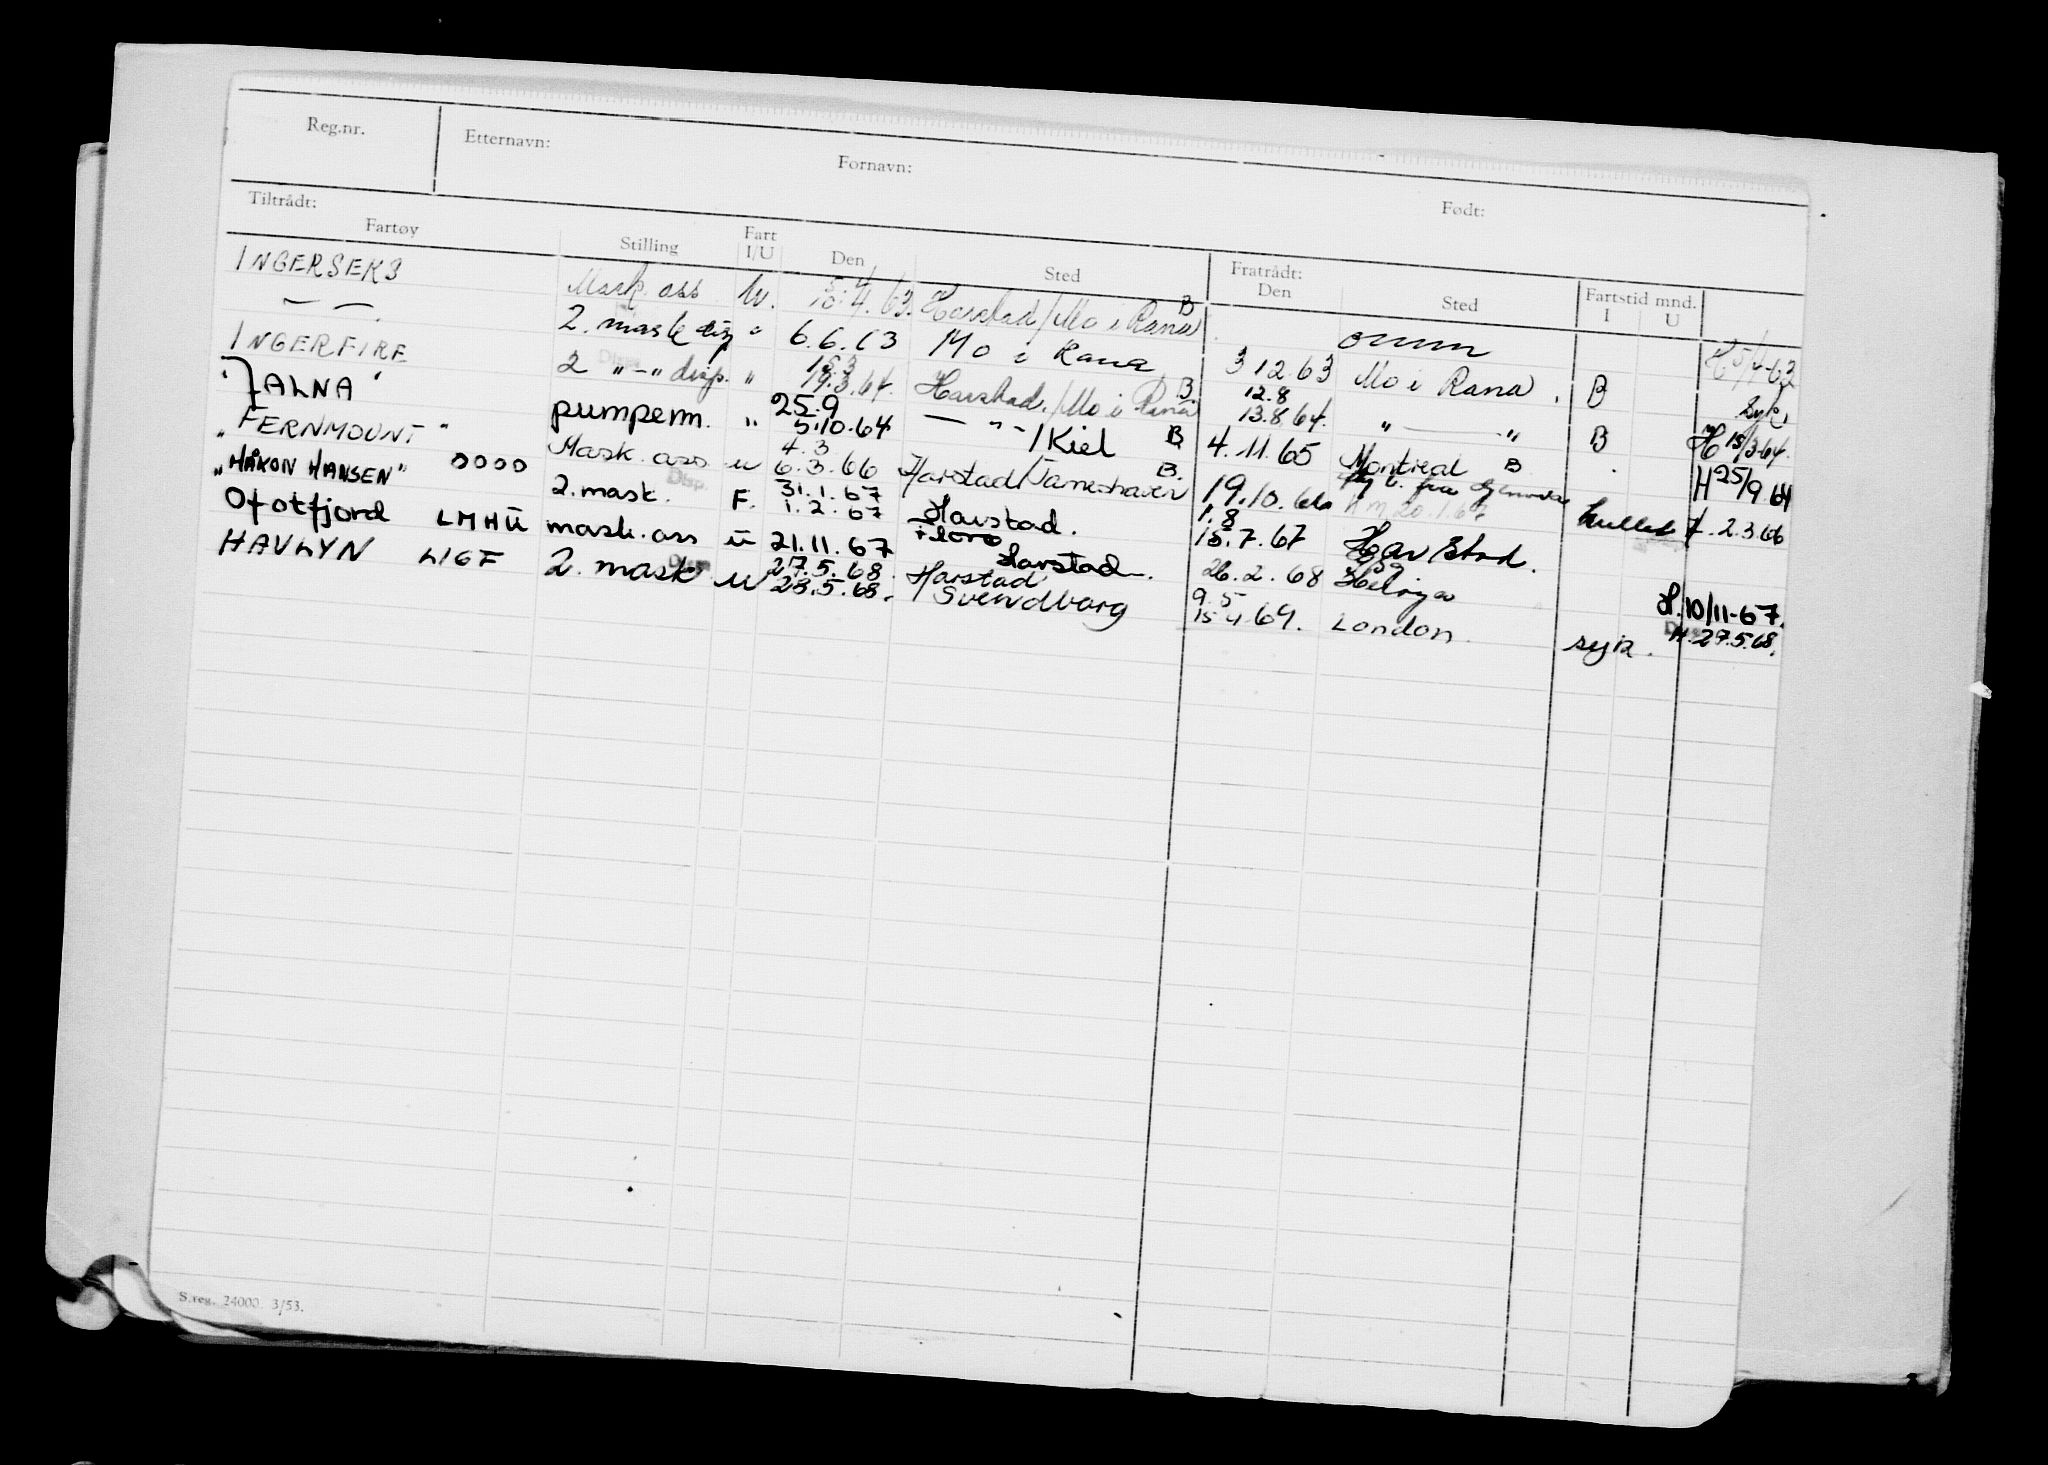 Reg.nr. Etternavn: Fornavn: Født:
Tiltrådt: Fratrådt:
Fartøy Stilling Fart I/U Den Sted Den Sted Fartstid mnd. I U
INGERSEKS Mask. ass U. 5.4 10.4.63. Harstad/Mo i Rana B omm H 5/4-63
— — 2. mask disp " 6.6.63 Mo i Rana 3 12.63 Mo i Rana. B syk.
INGERFIRE 2 " - " disp. " 15.3 19.3.64. Harstad./Mo i Rana B. 12.8 13.8.64. " — " B H 15/3-64.
"ALNA" pumpem. " 25.9 5.10.64 — " -/Kiel B 4.11.65 Montreal B H 25/9 64
"FERNMOUNT" Mask. ass u 4.3 6.3.66 Harstad/ B. 19.10.66 H. 2.3.66
"HÅKON HANSEN" OOOO 2. mask. F. 31.1.67 1.2.67 Harstad. Florø 1.8 15.7.67 Harstad.
Ofotfjord LMHU mask. ass u 21.11.67 Harstad. 26.2.68 H. 10/11-67.
HAVLYN LIGF 2. mask u 27.5.68. 28.5.68. Harstad/Svendborg 9.5 15 4.69. London. syk. H. 27.5.68.
S.reg. 24000. 3/53.